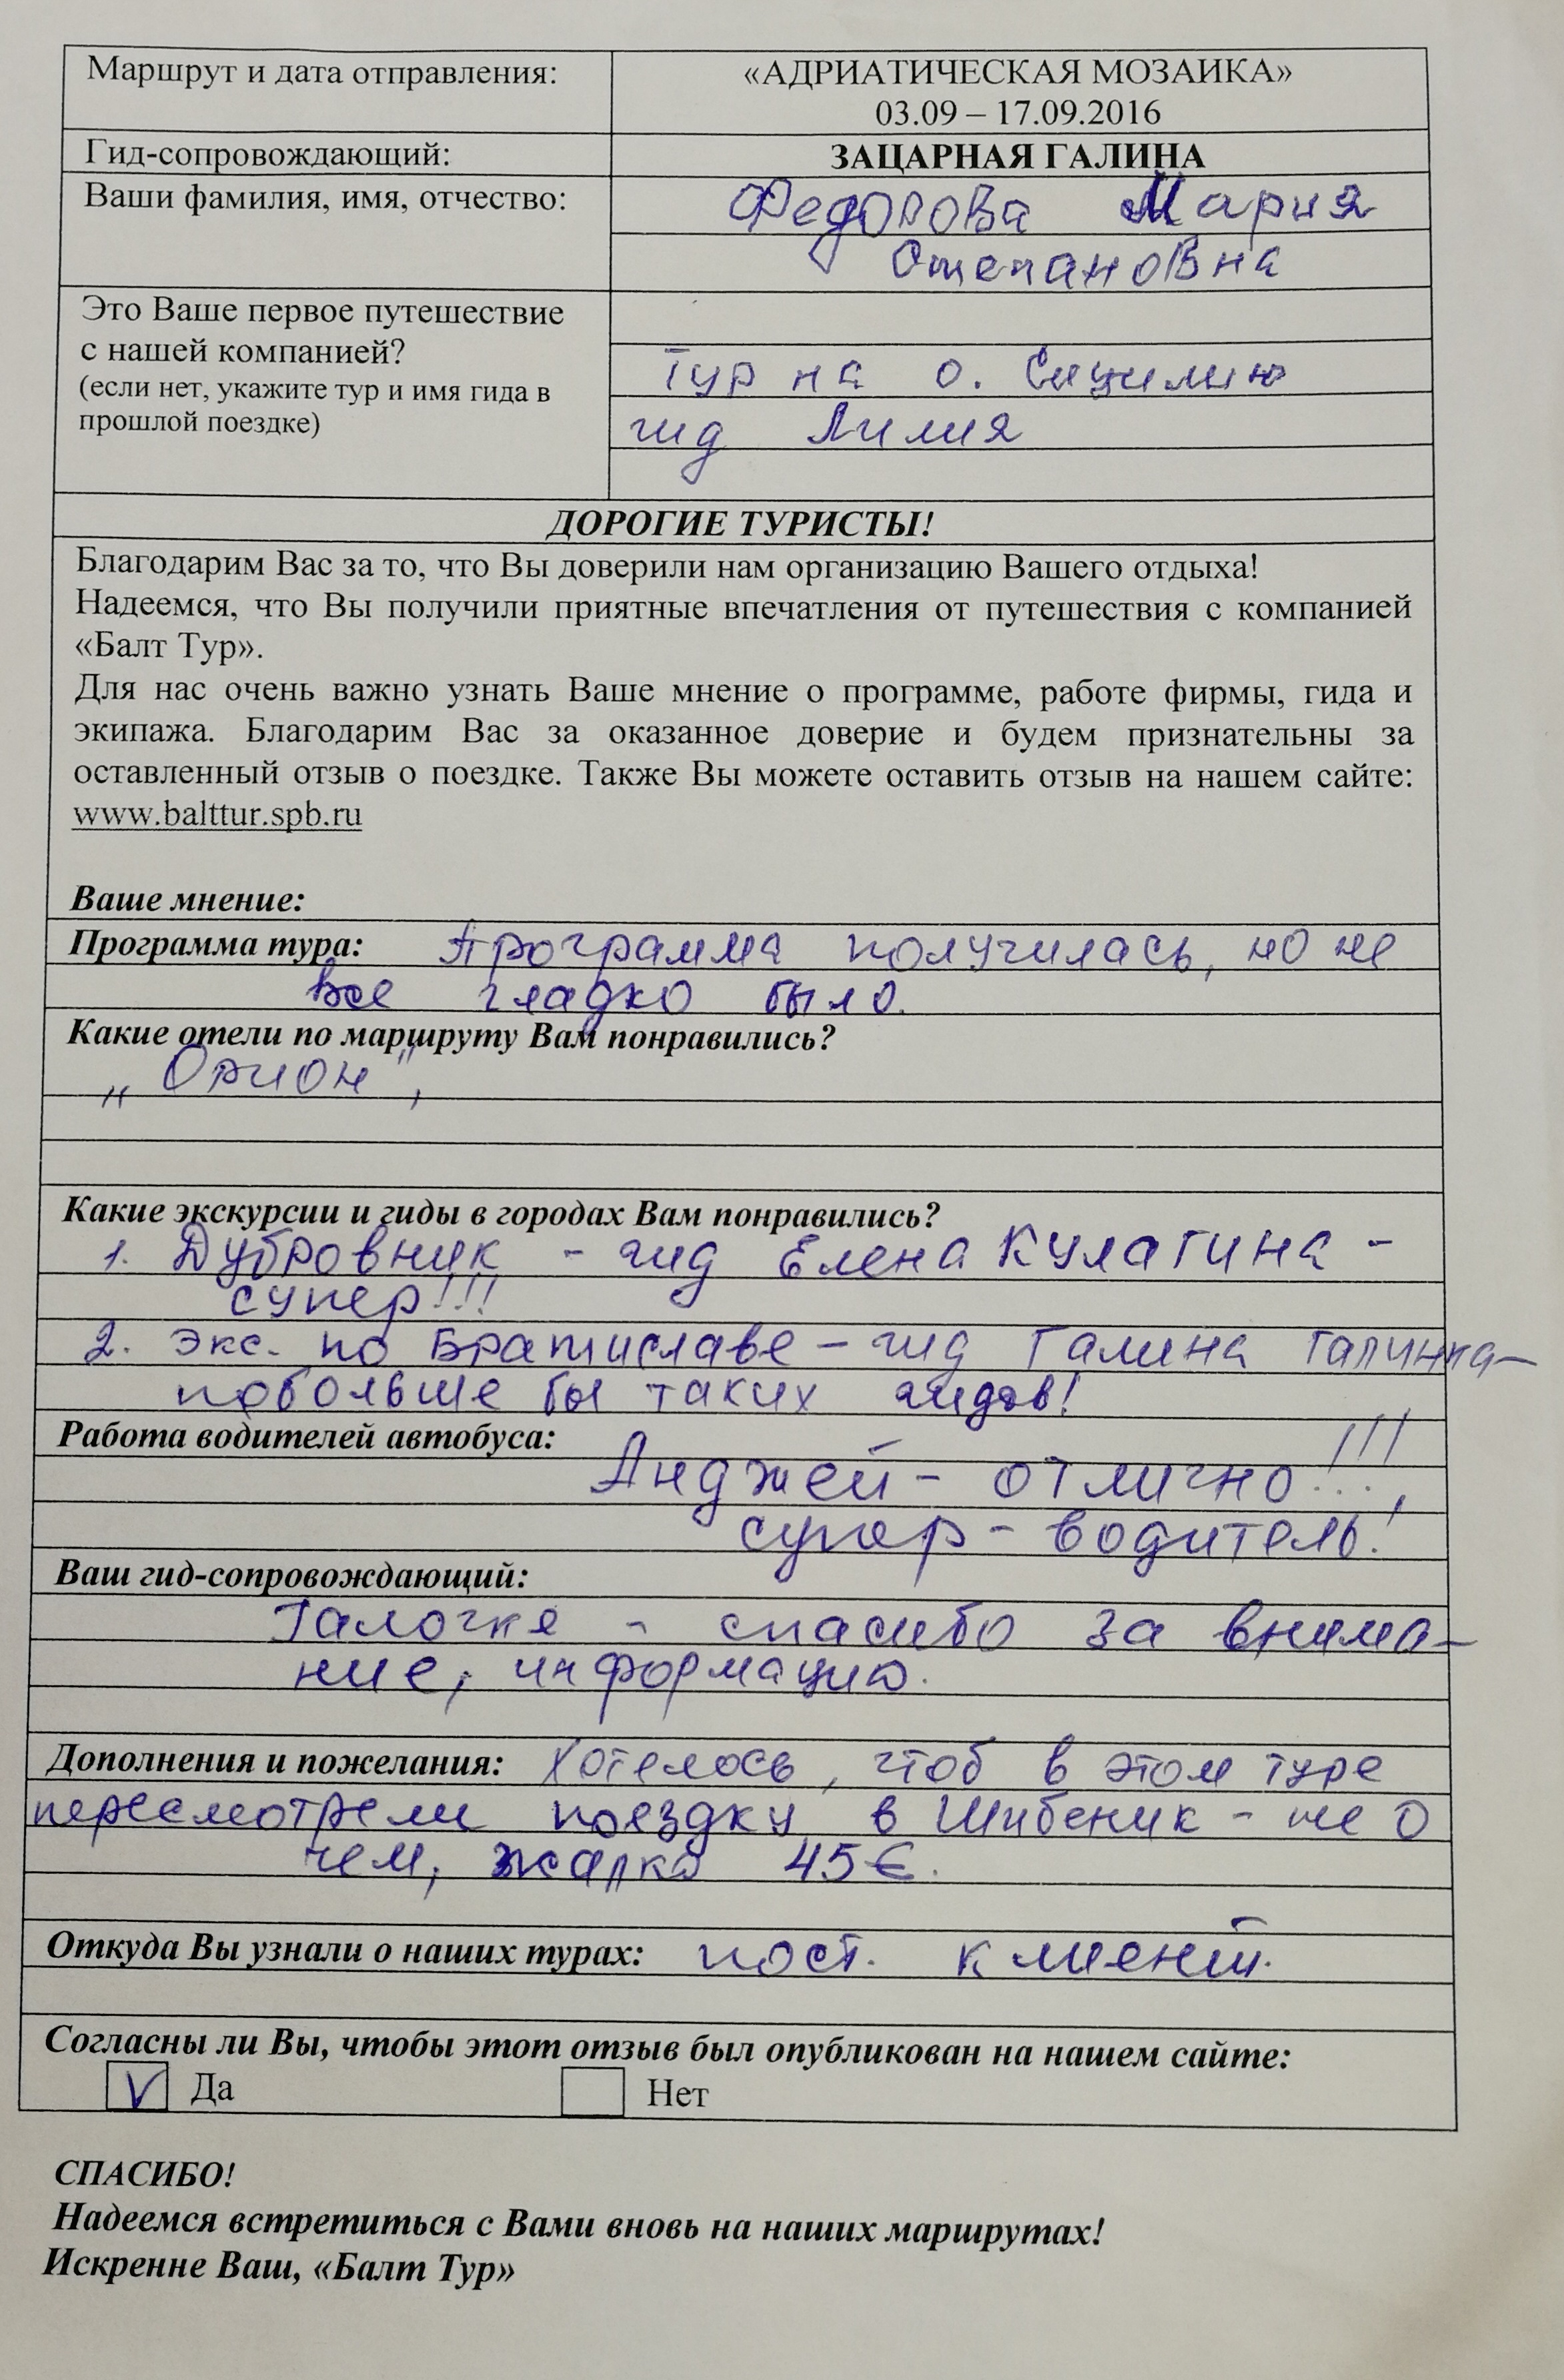 Маршрут и дата отправления:
«АДРИАТИЧЕСКАЯ МОЗАИКА»
03.09 – 17.09.2016
Гид-сопровождающий:
ЗАЦАРНАЯ ГАЛИНА
Ваши фамилия, имя, отчество:
Федорова Мария
Степановна
Это Ваше первое путешествие
с нашей компанией?
(если нет, укажите тур и имя гида в
прошлой поездке)
Тур на о. Сицилию
гид Лилия
ДОРОГИЕ ТУРИСТЫ!
Благодарим Вас за то, что Вы доверили нам организацию Вашего отдыха!
Надеемся, что Вы получили приятные впечатления от путешествия с компанией
«Балт Тур».
Для нас очень важно узнать Ваше мнение о программе, работе фирмы, гида и
экипажа. Благодарим Вас за оказанное доверие и будем признательны за
оставленный отзыв о поездке. Также Вы можете оставить отзыв на нашем сайте:
www.balttur.spb.ru
Ваше мнение:
Программа тура: Программа получилась, но не
все гладко было.
Какие отели по маршруту Вам понравились?
„Орион",
Какие экскурсии и гиды в городах Вам понравились?
1. Дубровник - гид Елена Кулагина -
супер!!!
2. экс. по Братиславе – гид Галина Галинка –
побольше бы таких гидов!
Работа водителей автобуса:
Анджей - отлично!!!,
супер - водитель!
Ваш гид-сопровождающий:
Галочке - спасибо за внима-
ние, информацию.
Дополнения и пожелания: Хотелось, чтоб в этом туре
пересмотрели поездку в Шибеник - не о
чем, жалко 45€.
Откуда Вы узнали о наших турах: пост. клиент.
Согласны ли Вы, чтобы этот отзыв был опубликован на нашем сайте:
V Да Нет
СПАСИБО!
Надеемся встретиться с Вами вновь на наших маршрутах!
Искренне Ваш, «Балт Тур»